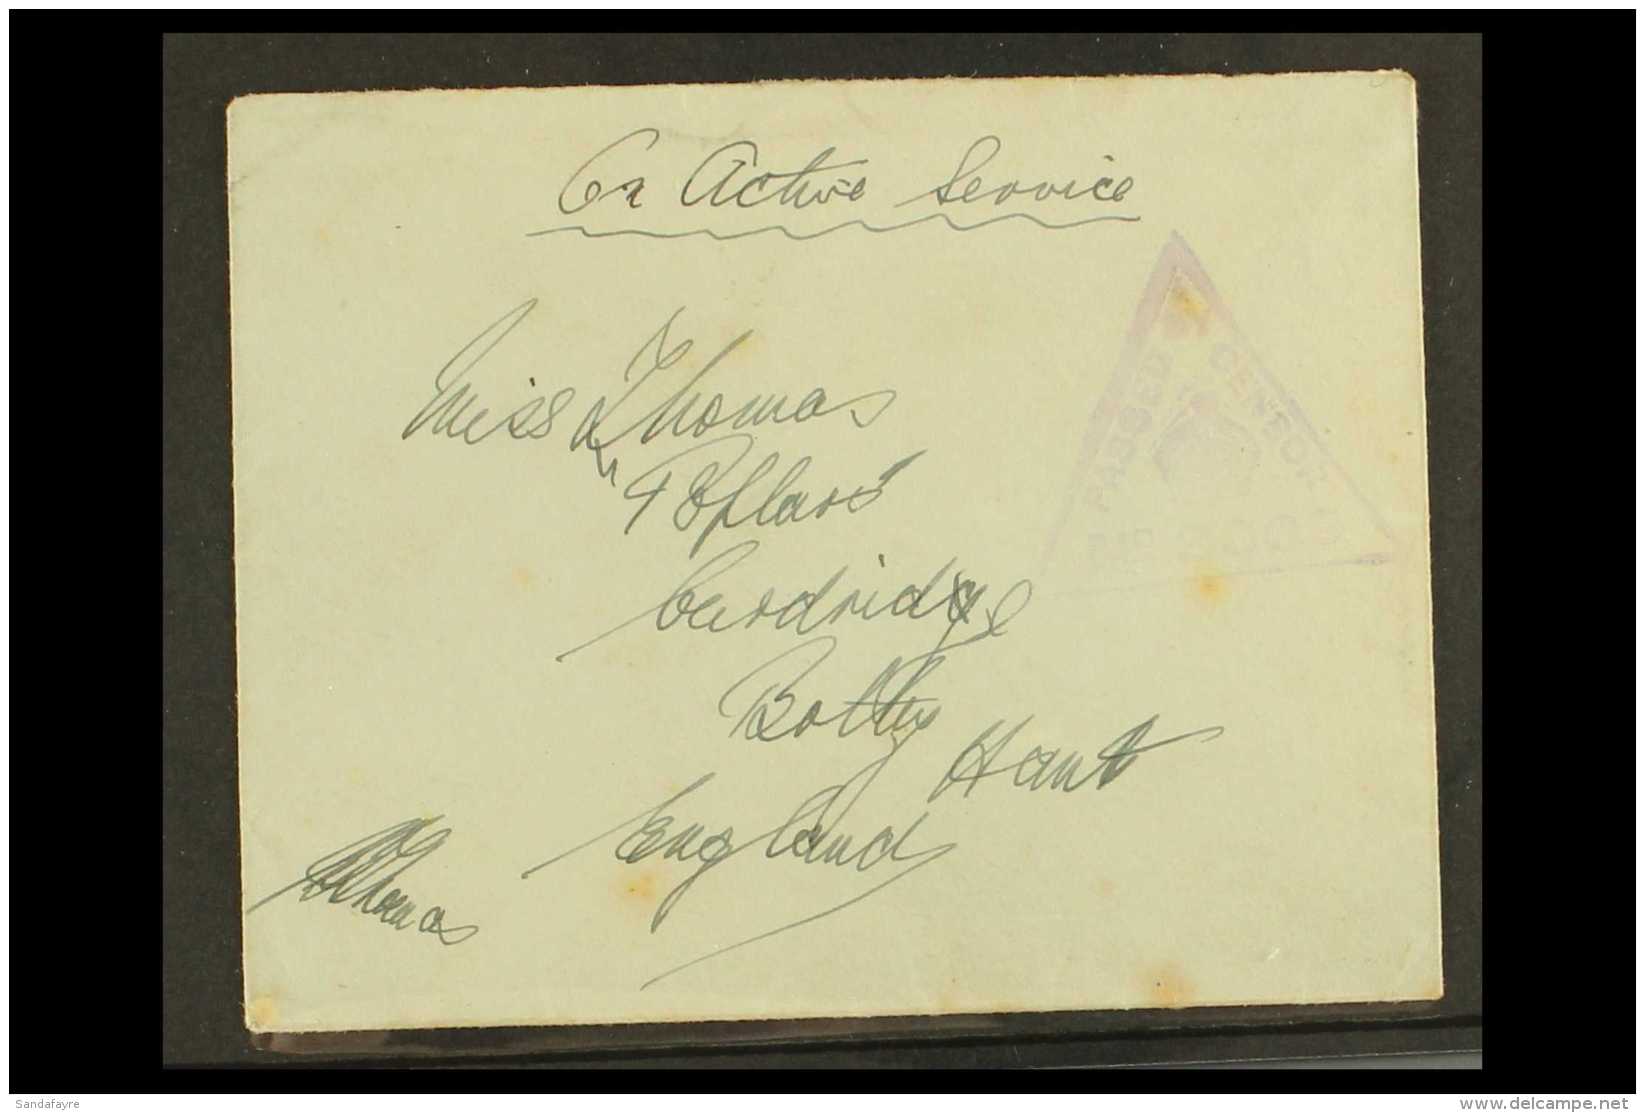 On Active Service
Miss Thomas
Poplars
Curdridge
Botley
Hants
England
Thomas
PASSED BY CENSOR
No
Sandafayre
www.delcampe.net